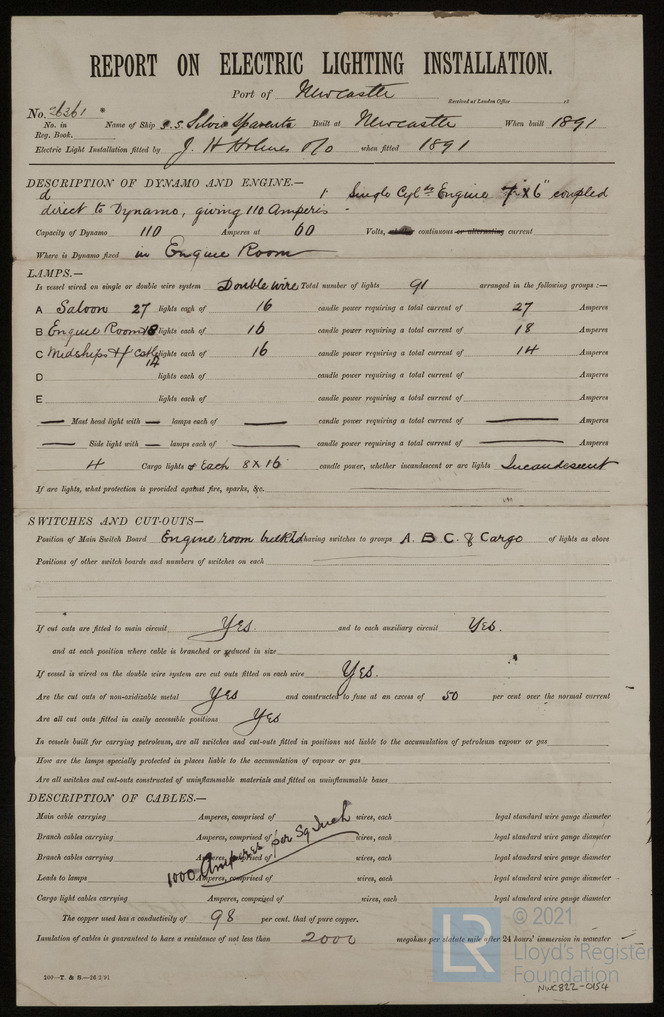 REPORT ON ELECTRIC LIGHTING INSTALLATION.
Port of Newcastle Received at London Office 18
No. 26361
No. in Reg. Book. Name of Ship S.S. Silvio Spaventa Built at Newcastle When built 1891
Electric Light Installation fitted by J. H Holmes & Co when fitted 1891
DESCRIPTION OF DYNAMO AND ENGINE.—
1 Single Cyl Engine 7" x 6" coupled
direct to Dynamo, giving 110 Amperes
Capacity of Dynamo 110 Amperes at 60 Volts, continuous or alternating current
Where is Dynamo fixed in Engine Room
LAMPS.—
Is vessel wired on single or double wire system Double wire Total number of lights 91 arranged in the following groups :—
A Saloon 27 lights each of 16 candle power requiring a total current of 27 Amperes
B Engine Room 18 lights each of 16 candle power requiring a total current of 18 Amperes
C Midships & F Cstle 14 lights each of 16 candle power requiring a total current of 14 Amperes
D lights each of candle power requiring a total current of Amperes
E lights each of candle power requiring a total current of Amperes
— Mast head light with — lamps each of — candle power requiring a total current of — Amperes
— Side light with — lamps each of — candle power requiring a total current of — Amperes
4 Cargo lights of Each 8 x 16 candle power, whether incandescent or arc lights Incandescent
If arc lights, what protection is provided against fire, sparks, &c.
SWITCHES AND CUT-OUTS—
Position of Main Switch Board Engine room bulkhd having switches to groups A. B C. & Cargo of lights as above
Positions of other switch boards and numbers of switches on each
If cut outs are fitted to main circuit Yes. and to each auxiliary circuit Yes.
and at each position where cable is branched or reduced in size
If vessel is wired on the double wire system are cut outs fitted on each wire Yes.
Are the cut outs of non-oxidizable metal Yes and constructed to fuse at an excess of 50 per cent over the normal current
Are all cut outs fitted in easily accessible positions Yes
In vessels built for carrying petroleum, are all switches and cut-outs fitted in positions not liable to the accumulation of petroleum vapour or gas
How are the lamps specially protected in places liable to the accumulation of vapour or gas
Are all switches and cut-outs constructed of uninflammable materials and fitted on uninflammable bases
DESCRIPTION OF CABLES.—
Main cable carrying Amperes, comprised of wires, each legal standard wire gauge diameter
Branch cables carrying Amperes, comprised of wires, each legal standard wire gauge diameter
Branch cables carrying Amperes, comprised of wires, each legal standard wire gauge diameter
1000 Amperes per Sq Inch
Leads to lamps Amperes, comprised of wires, each legal standard wire gauge diameter
Cargo light cables carrying Amperes, comprised of wires, each legal standard wire gauge diameter
The copper used has a conductivity of 98 per cent. that of pure copper.
Insulation of cables is guaranteed to have a resistance of not less than 2000 megohms per statute mile after 24 hours' immersion in seawater
LR © 2021
Lloyd's Register
Foundation
200—T. & S.—26.2.91
NWC822-0154